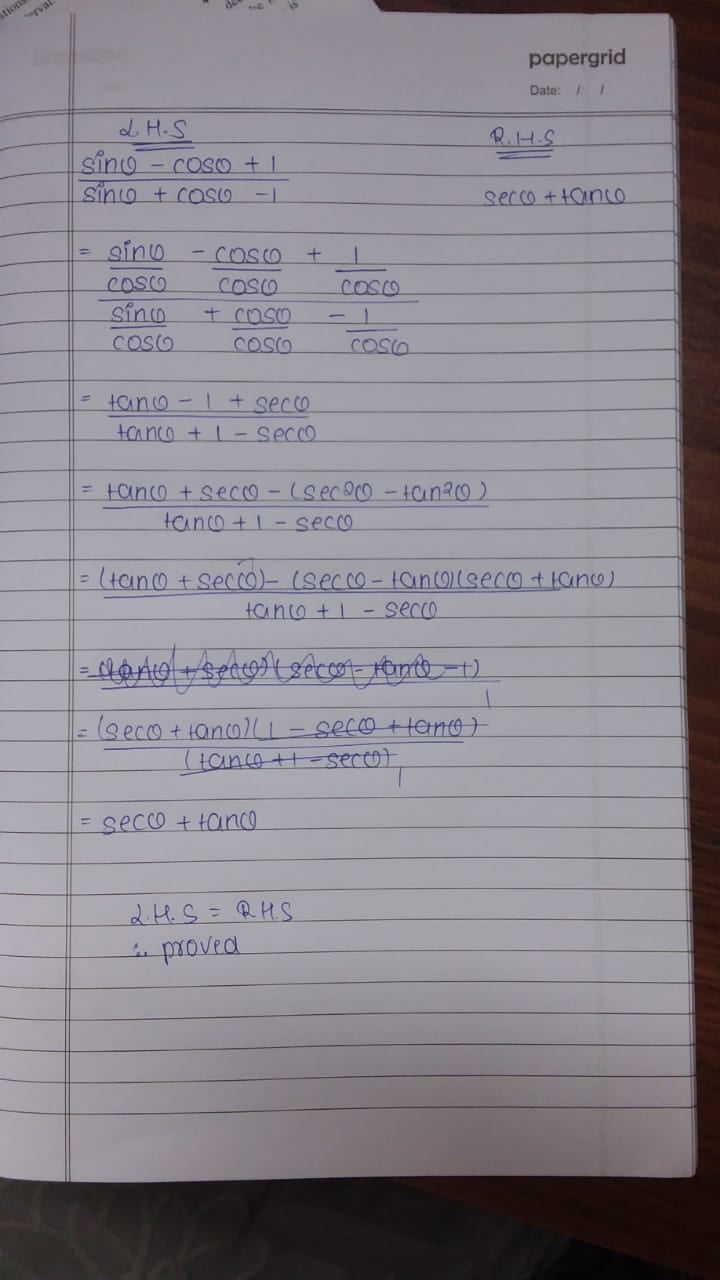 papergrid
Date: / /
L.H.S R.H.S
sinθ - cosθ + 1
sinθ + cosθ - 1
secθ + tanθ
= sinθ - cosθ + 1
cosθ cosθ cosθ
sinθ + cosθ - 1
cosθ cosθ cosθ
= tanθ - 1 + secθ
tanθ + 1 - secθ
= tanθ + secθ - (sec2θ - tan2θ)
tanθ + 1 - secθ
= (tanθ + secθ) - (secθ - tanθ)(secθ + tanθ)
tanθ + 1 - secθ
= (tanθ + secθ)(secθ - tanθ - 1)
1
= (secθ + tanθ)(1 - secθ + tanθ)
(tanθ + 1 - secθ)
1
= secθ + tanθ
L.H.S = R.H.S
∴ proved